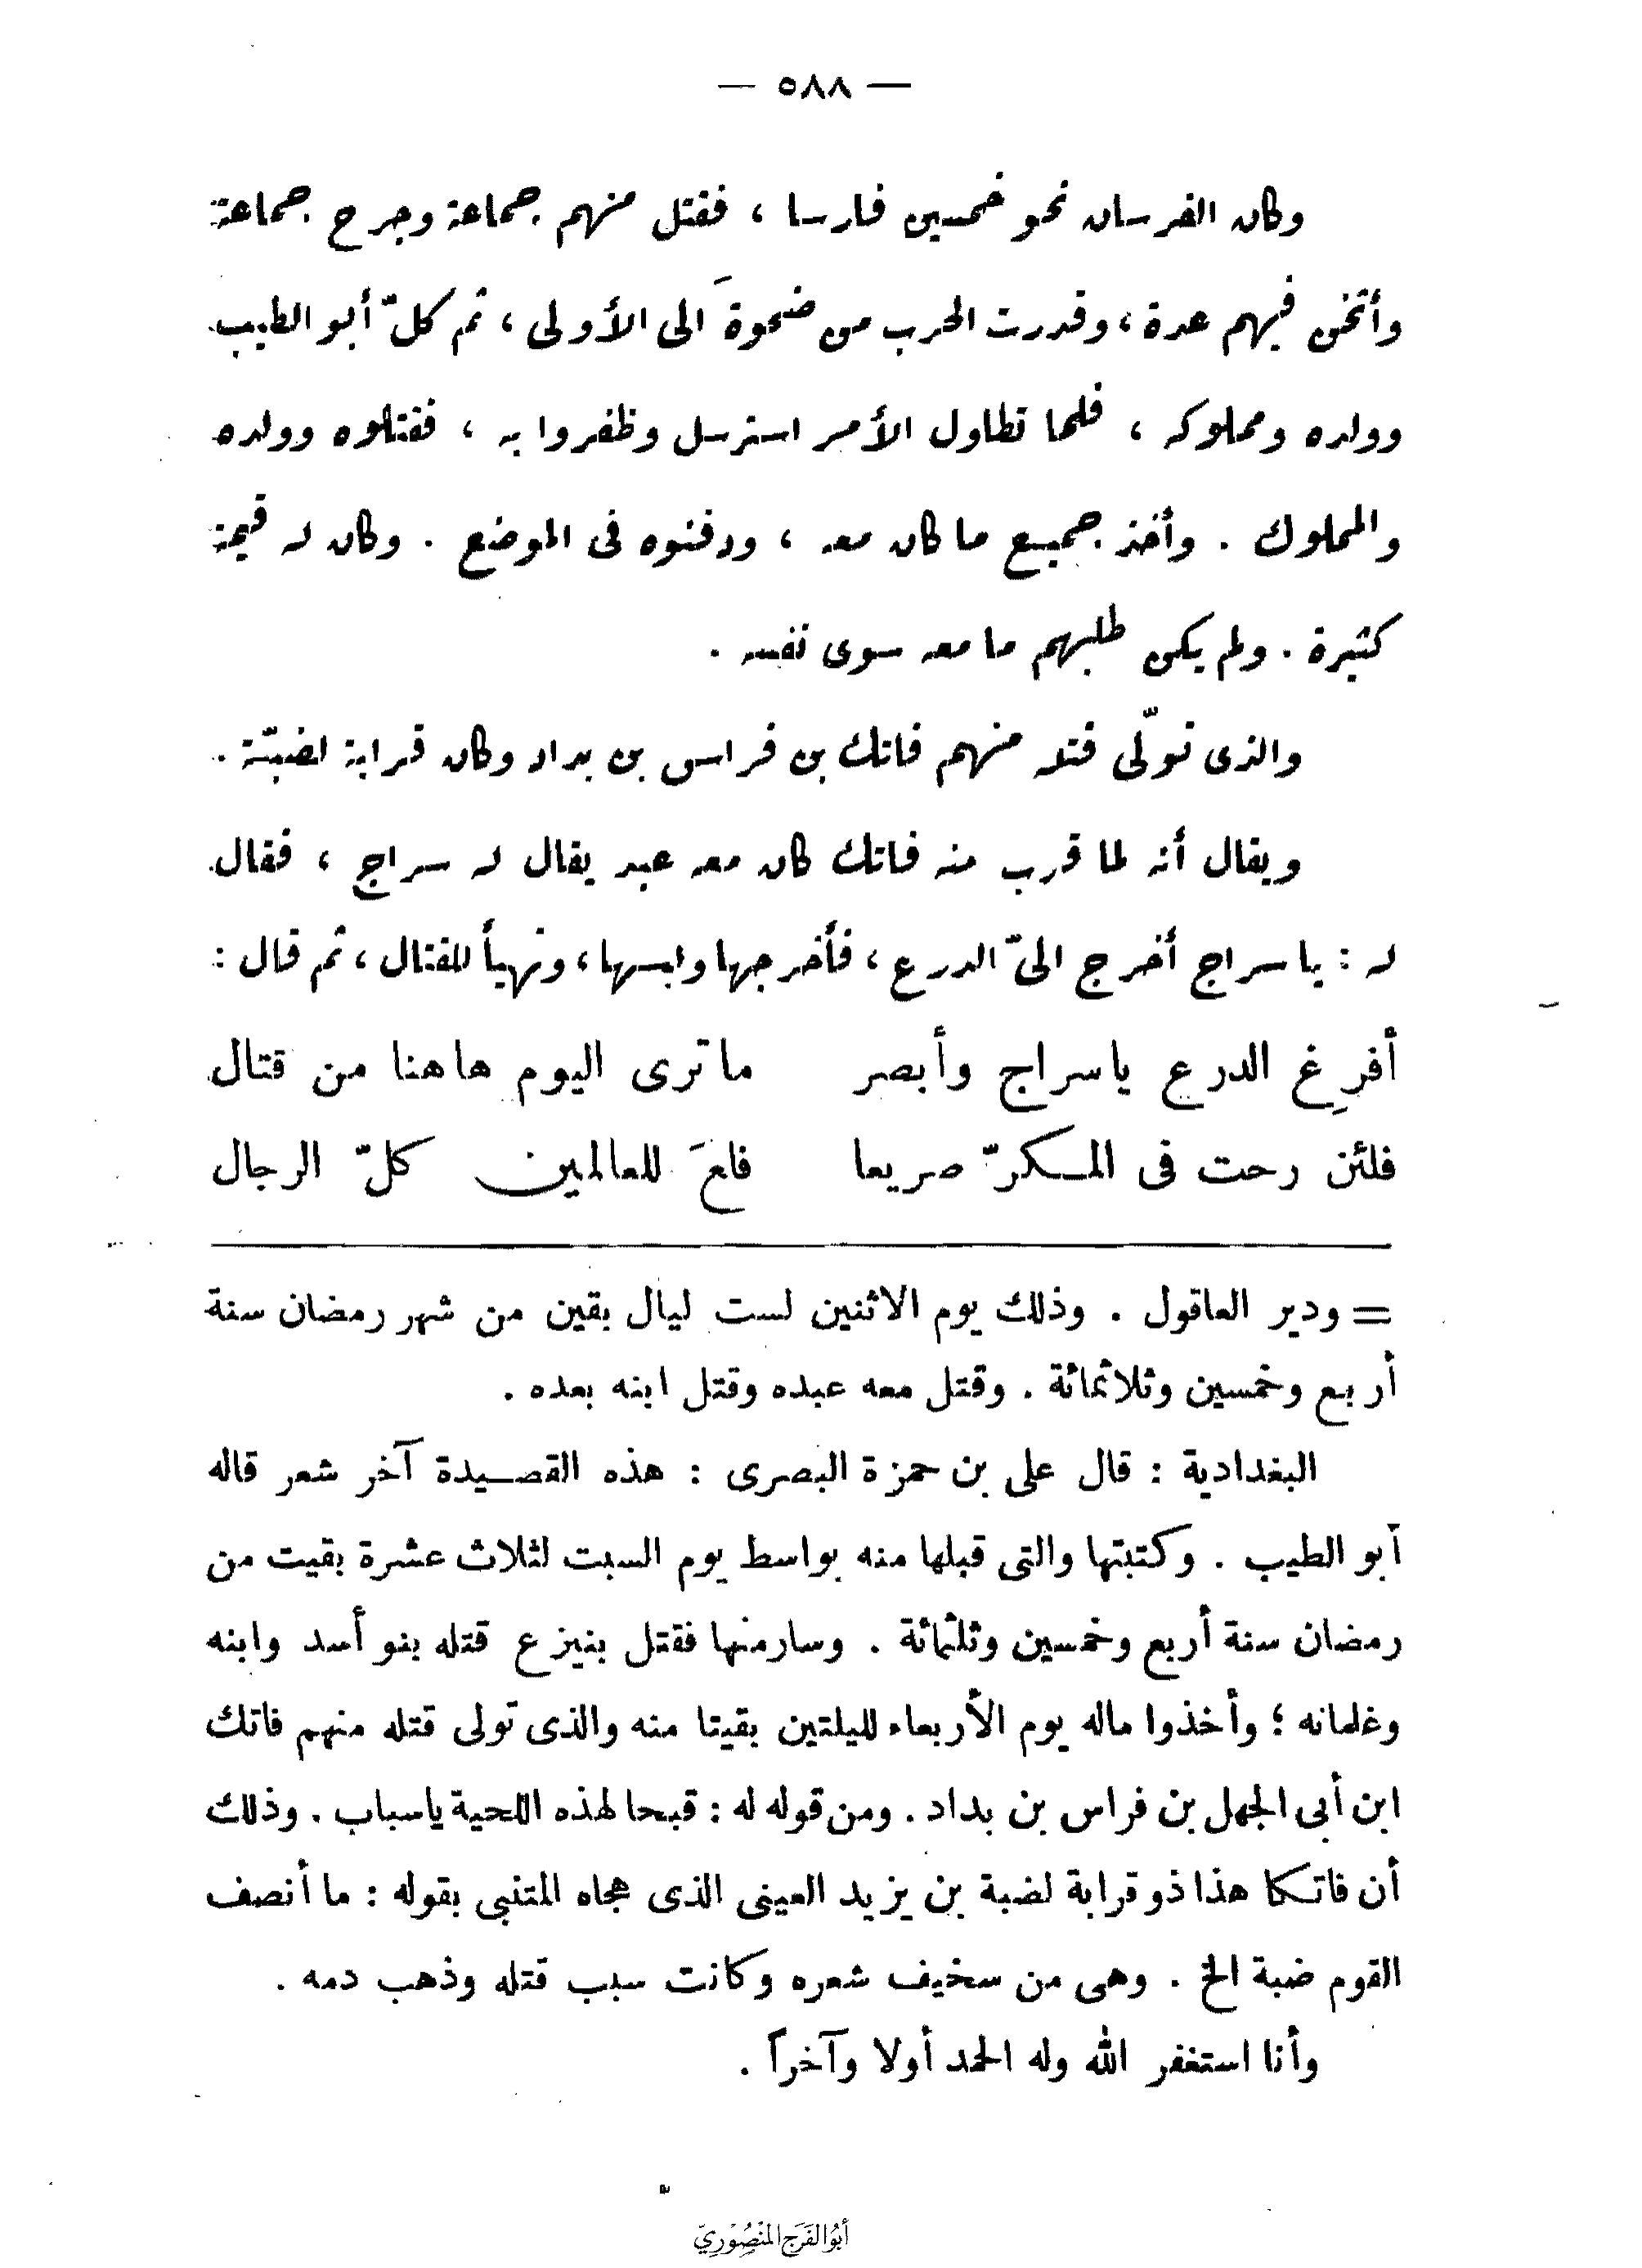 — ٥٨٨ —
وكان الفرسان نحو خمسين فارسا ، فقتل منهم جماعة وجرح جماعة
وأثخن فيهم عدة ، وقدرت الحرب من ضحوةَ الى الأولى ، ثم كلّ أبو الطيب
وولده ومملوكه ، فلما تطاول الأمر استرسل وظفروا به ، فقتلوه وولده
والمملوك . وأخذ جميع ما كان معه ، ودفنوه فى الموضع . وكان له قيمة
كثيرة . ولم يكن طلبهم ما معه سوى نفسه .
والذى تولّى قتله منهم فاتك بن فراس بن بداد وكان قرابة لضبّة .
ويقال أنه لما قرب منه فاتك كان معه عبد يقال له سراج ، فقال
له : يا سراج أخرج الىّ الدرع ، فأخرجها ولبسها ، وتهيأ للقتال ، ثم قال :
أفرِغ الدرع ياسراج وأبصر ما ترى اليوم هاهنا من قتال
فلئن رحت فى المكرّ صريعا فانعَ للعالمين كلّ الرجال
= ودير العاقول . وذلك يوم الاثنين لست ليال بقين من شهر رمضان سنة
أربع وخمسين وثلاثمائة . وقتل معه عبده وقتل ابنه بعده .
البغدادية : قال على بن حمزة البصرى : هذه القصيدة آخر شعر قاله
أبو الطيب . وكتبتها والتى قبلها منه بواسط يوم السبت لثلاث عشرة بقيت من
رمضان سنة أربع وخمسين وثلثمائة . وسار منها فقتل بنيزع قتله بنو أسد وابنه
وغلمانه ؛ وأخذوا ماله يوم الأربعاء لليلتين بقيتا منه والذى تولى قتله منهم فاتك
ابن أبى الجهل بن فراس بن بداد . ومن قوله له : قبحا لهذه اللحية ياسباب . وذلك
أن فاتكا هذا ذو قرابة لضبة بن يزيد العينى الذى هجاه المتنبى بقوله : ما أنصف
القوم ضبة الخ . وهى من سخيف شعره وكانت سبب قتله وذهب دمه .
وأنا استغفر الله وله الحمد أولا وآخراً .
أبُو الفَرَج المَنْصُوْرِيّ